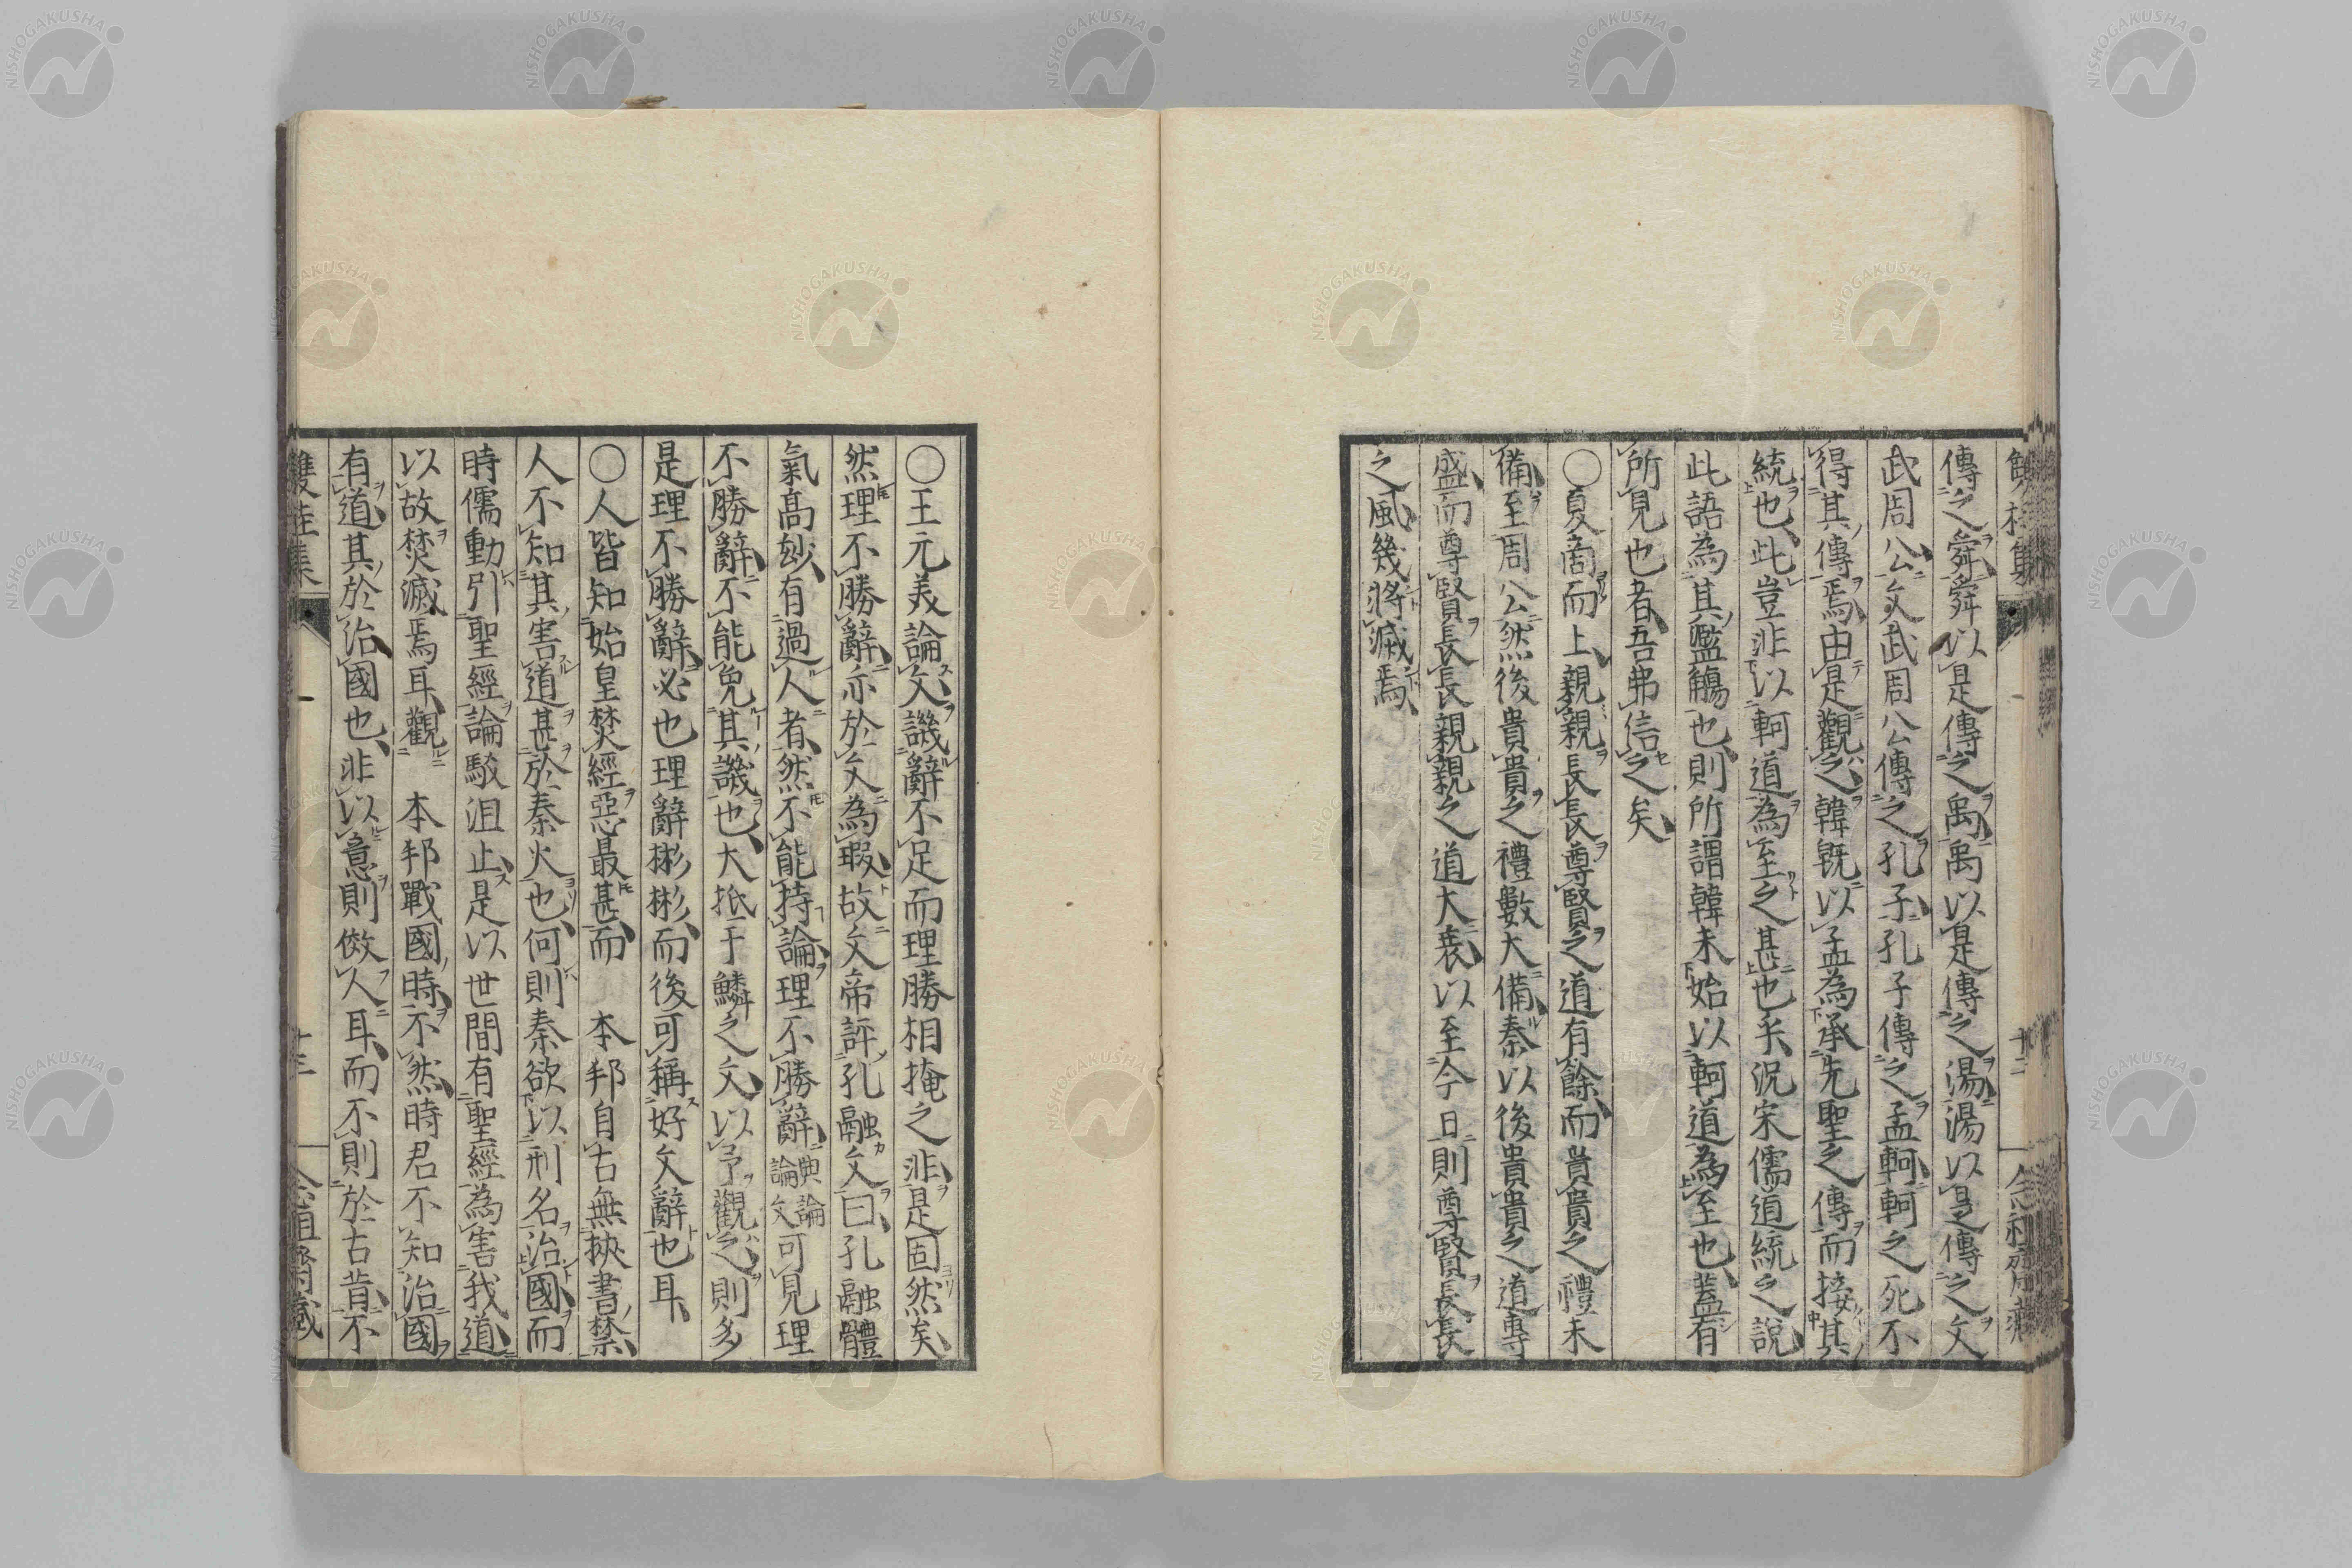 傳之舜舜以是傳之禹禹以是傳之湯湯以是傳之文
武周公文武周公傳之孔子孔子傳之孟軻軻之死不
得其傳焉由是觀之韓既以孟為承先聖之傳而接其
統也此豈非以軻道為至之甚也乎況宋儒道統之說
此語為其濫觴也則所謂韓未始以軻道為至也蓋有
所見也者吾弗信之矣
〇夏商而上親親長長尊賢之道有餘而貴貴之禮未
備至周公然後貴貴之禮數大備秦以後貴貴之道專
盛而尊賢長長親親之道大衰以至今日則尊賢長長
之風幾將滅焉
〇王元美論文譏辭不足而理勝相掩之非是固然矣
然理不勝辭亦於文為瑕故文帝評孔融文曰孔融體
氣高玅有過人者然不能持論理不勝辭典論論文可見理
不勝辭不能免其譏也大抵于鱗之文以予觀之則多
是理不勝辭必也理辭彬彬而後可稱好文辭也耳
〇人皆知始皇焚經惡最甚而　本邦自古無挾書禁
人不知其害道甚於秦火也何則秦欲以刑名治國而
時儒動引聖經論駁沮止是以世間有聖經為害我道
以故焚滅焉耳觀　本邦戰國時不然時君不知治國
有道其於治國也非以意則倣人耳而不則於古昔不
雙桂集